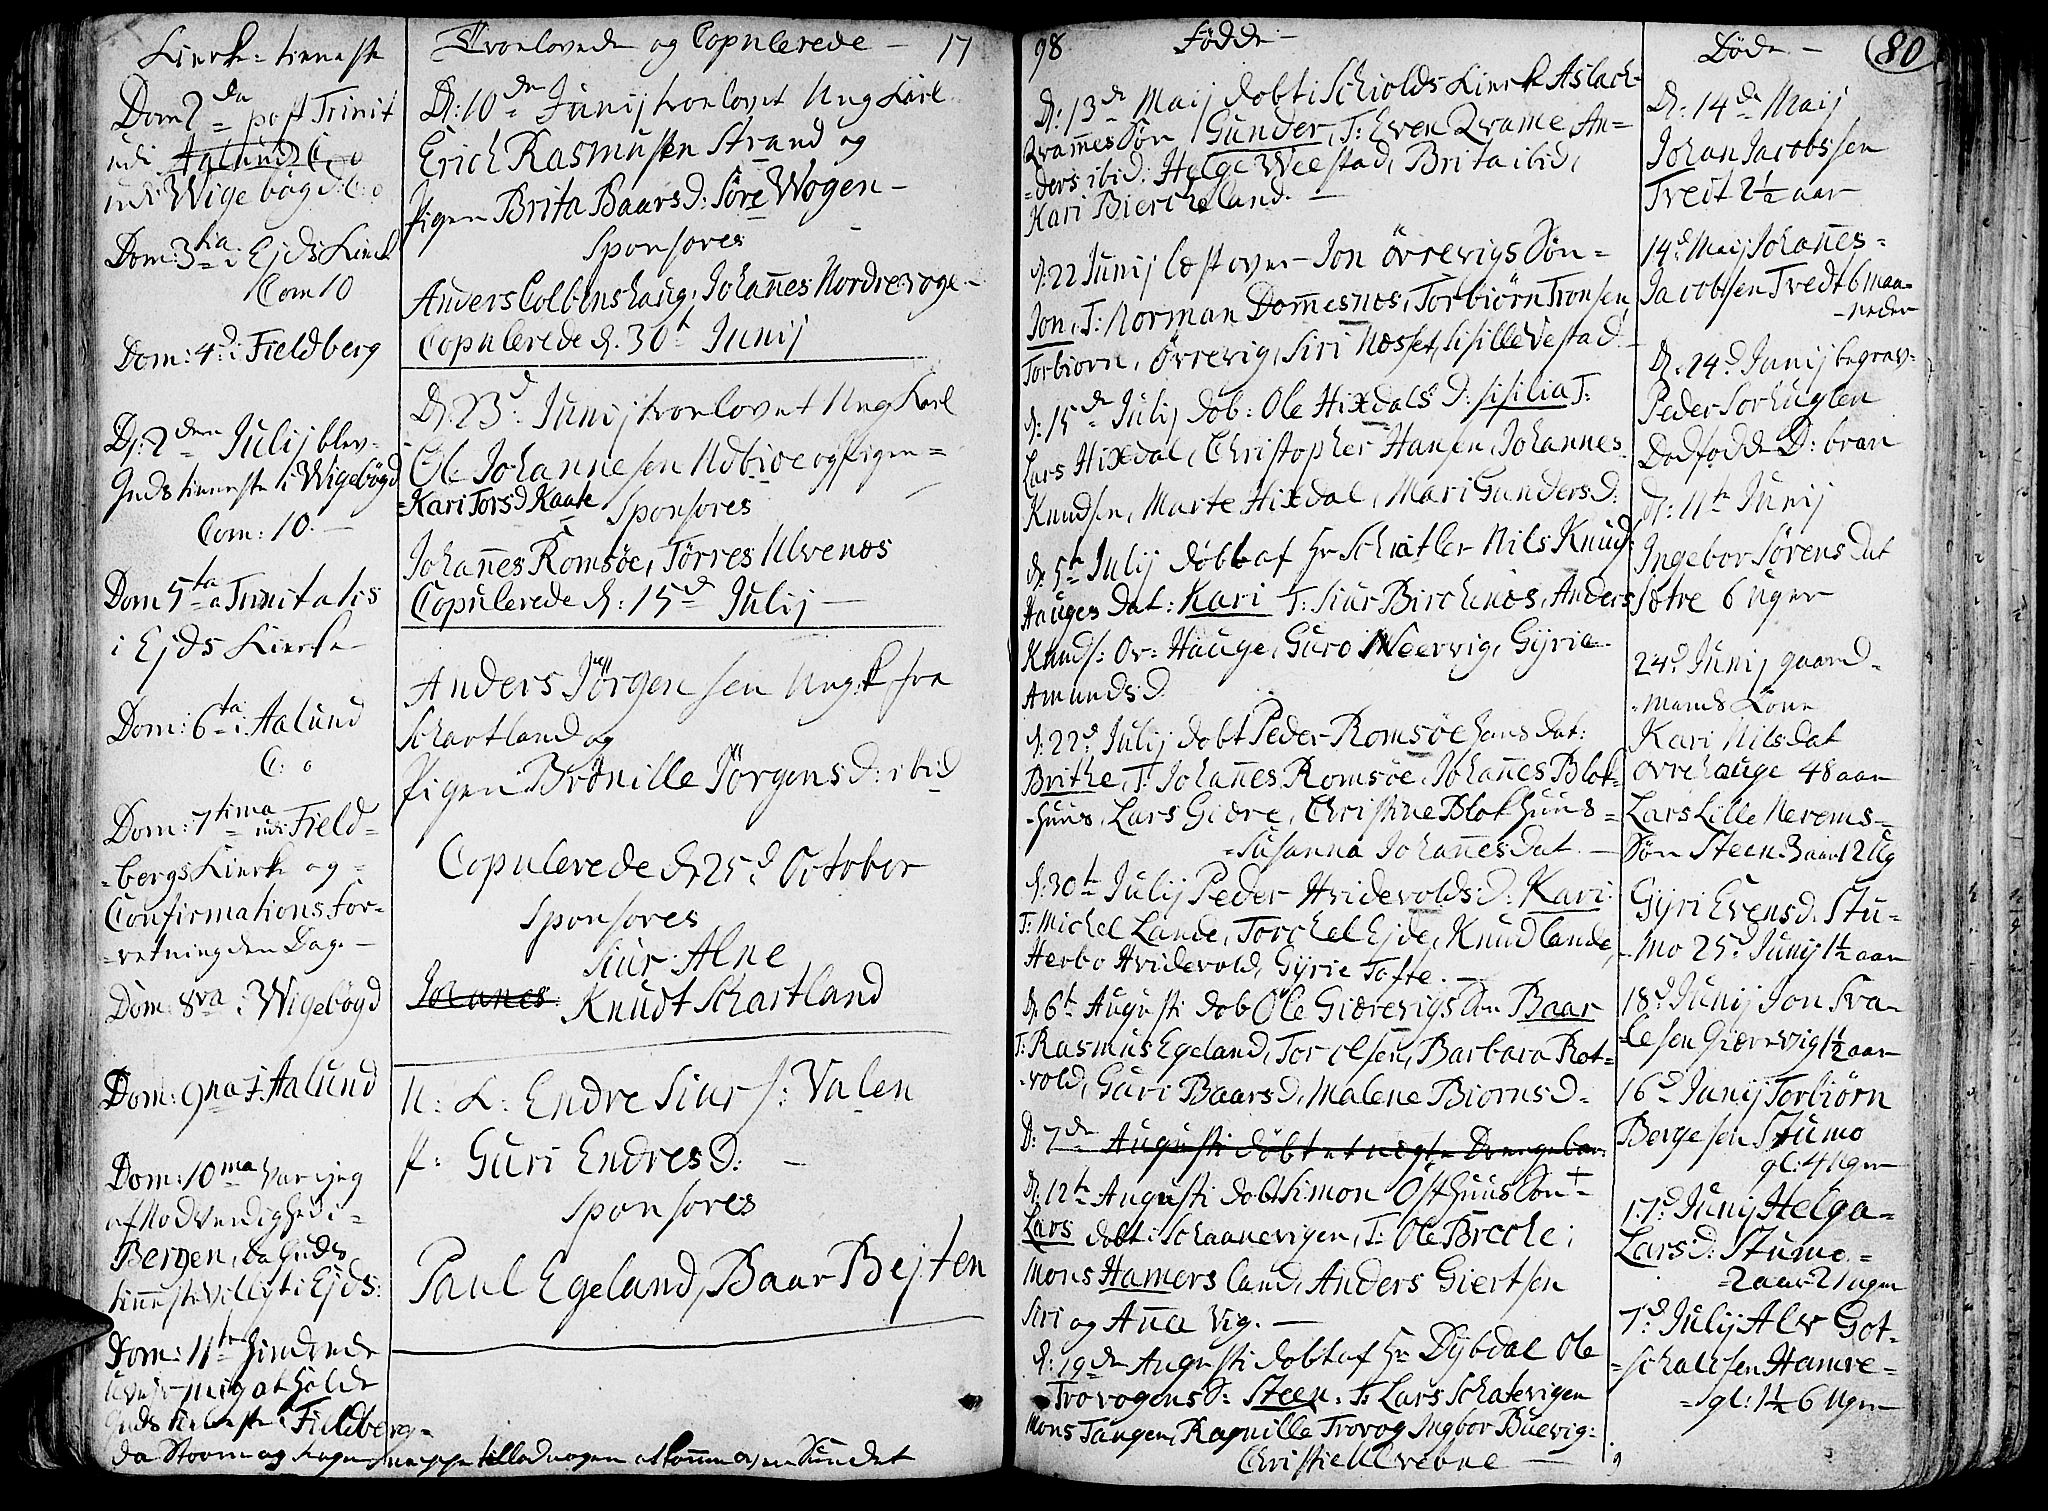 Kierke: tieneste
Dom 2da post Trinit
udi Aalund C. 0
udi Wigebøgd C: 0
Dom: 3tia i Ejds Kierk
Com 10
Dom: 4d i Fieldberg
D: 2den Julij blev
Guds tieneste i Wigebøgd
Com: 10. —
Dom 5ta Trinitatis
i Ejds Kierke
Dom: 6ta i Aalund
C: 0
Dom: 7tima udi Field-
-bergs Kierke og =
Confirmations For-
-retning den Dag. —
Dom: 8va i Wigebögd
Dom: 9na i Aalund
Dom: 10ma var jeg
af Nodvendighed i =
Bergen, da Guds
tieneste i Ejds:
Dom: 11te
mig at holde
Guds tieneste i Fieldberg =
da Storm og at komme over Sundet
Troelovede og Copulerede — 17
D: 10de Junij troelovet Ung Karl
Erich Rasmussen Strand og
Pigen Brita Baarsd: Søre Wogen —
Sponsores
Anders Colbenshaug, Johannes Nordrevoge —
Copulerede d. 30t Junij
D: 23d Junij troelovet Ung Karl
Ole Johannesen Nobioe og Pigen =
= Kari Torsd Kaate Sponsores
Johannes Romsøe, Törres Ulvenos
Copulerede d: 15d Julij —
Anders Jörgensen Ung: k fra
Schartland og
Pigen Brönille Jörgensd: ibid
Copulerede d 25d October
Sponsores
Siur Alne
Johanes Knudt Schartland
U: K: Endre Siurs: Valen
P: Guri Endresd: —
Sponsores
Paul Egeland, Baar Bejten
98 Fødde —
D: 13d Maij dobt i Schiolds Kierk Aslach
Qvamnes Søn Gunder, T: Even Qvame An=
=ders ibid: Helge Weestad, Brita ibid,
Kari Biercheland. —
d: 22 Junij lest over Jon Övrevigs Søn =
Jon, T: Norman Domesnos, Torbiörn Tronsen
Torbiorn, Övrevig, Siri Nosset, Sisille Vestad
d: 15de Julij dob: Ole Hixdals D: Sisilia T:
Lars Hixdal, Christopher Hansen, Johannes
Knudsen, Marte Hixdal, Mari Gundersd:
d. 5te Julij døbt af Hr Nils Knud
Hauges Dat: Kari T: Siur Birchenos, Anders
Knuds: Ov: Hauge, Guro Neervig, Gyrie
Amundsd
d: 22d Julij dobt Peder Romsøe hans dat:
Brithe, T: Johannes Romsøe, Johannes Blok-
-huus, Lars Giære, Christine Blokhuus =
= Susanna Johannesdat. —
d: 30t Julij Peder Hvidevolds D: Kari
T: Michel Lande, Torchel Ejde, Knud Lande,
Herbo Hvidevold, Gyrie Tofte. —
d. 6t Augusti dob Ole Gierevigs Søn Baar
T: Rasmus Egeland, Tor Olsen, Barbara Rot-
-vold, Guri Baarsd, Malene Biornsd =
D: 7de Augusti döbt et uægte Drengebarn
d: 12te Augusti dobt Simon Östhuus Søn =
Lars dobt i Schaanevigen, T: Ole Breche;
Mons Hamersland, Anders Giertsen
Siri og Anna Vig. —
d: 19de Augusti dobt af Hr Dybdal Ole
Trovogens S: Steen. T: Lars Schatevigen
Mons Tangen, Ragnille Trovog Ingbor Buevig:
Christie Ulvebne —
Døde — 80
D: 14de Maij
Johan Jacobssen
Tvedt 2½ aar
14d Maij Johannes =
Jacobsen Tvedt 6 maa-
-neder
D. 24d Junij begrav-
Peder Sorhuglen
Dodfødde D: bran
d: 11te Junij
Ingebor Sörensdat
Sotre 6 uger
24d Junij gaard-
-mands Kone
Kari Nilsdat
Ovrehauge 48 aar
Lars Lille Nerems-
Søn Steen 3 aar 12 ug
Gyri Evensd: Stu-
-mo 25d Junij 1½ aar
18d Junij Jon Sva-
-lesen Giærevig 1½ aar
16d Junij Torbiörn
Bergesen Stumo
gl: 4 Uger
17d Junij Helga =
Larsd: Stumo. =
= 2 aar 21 uger
7d Julij Alv Got-
= schalcksen Hamre =
= gl: 1½ 6 Uger